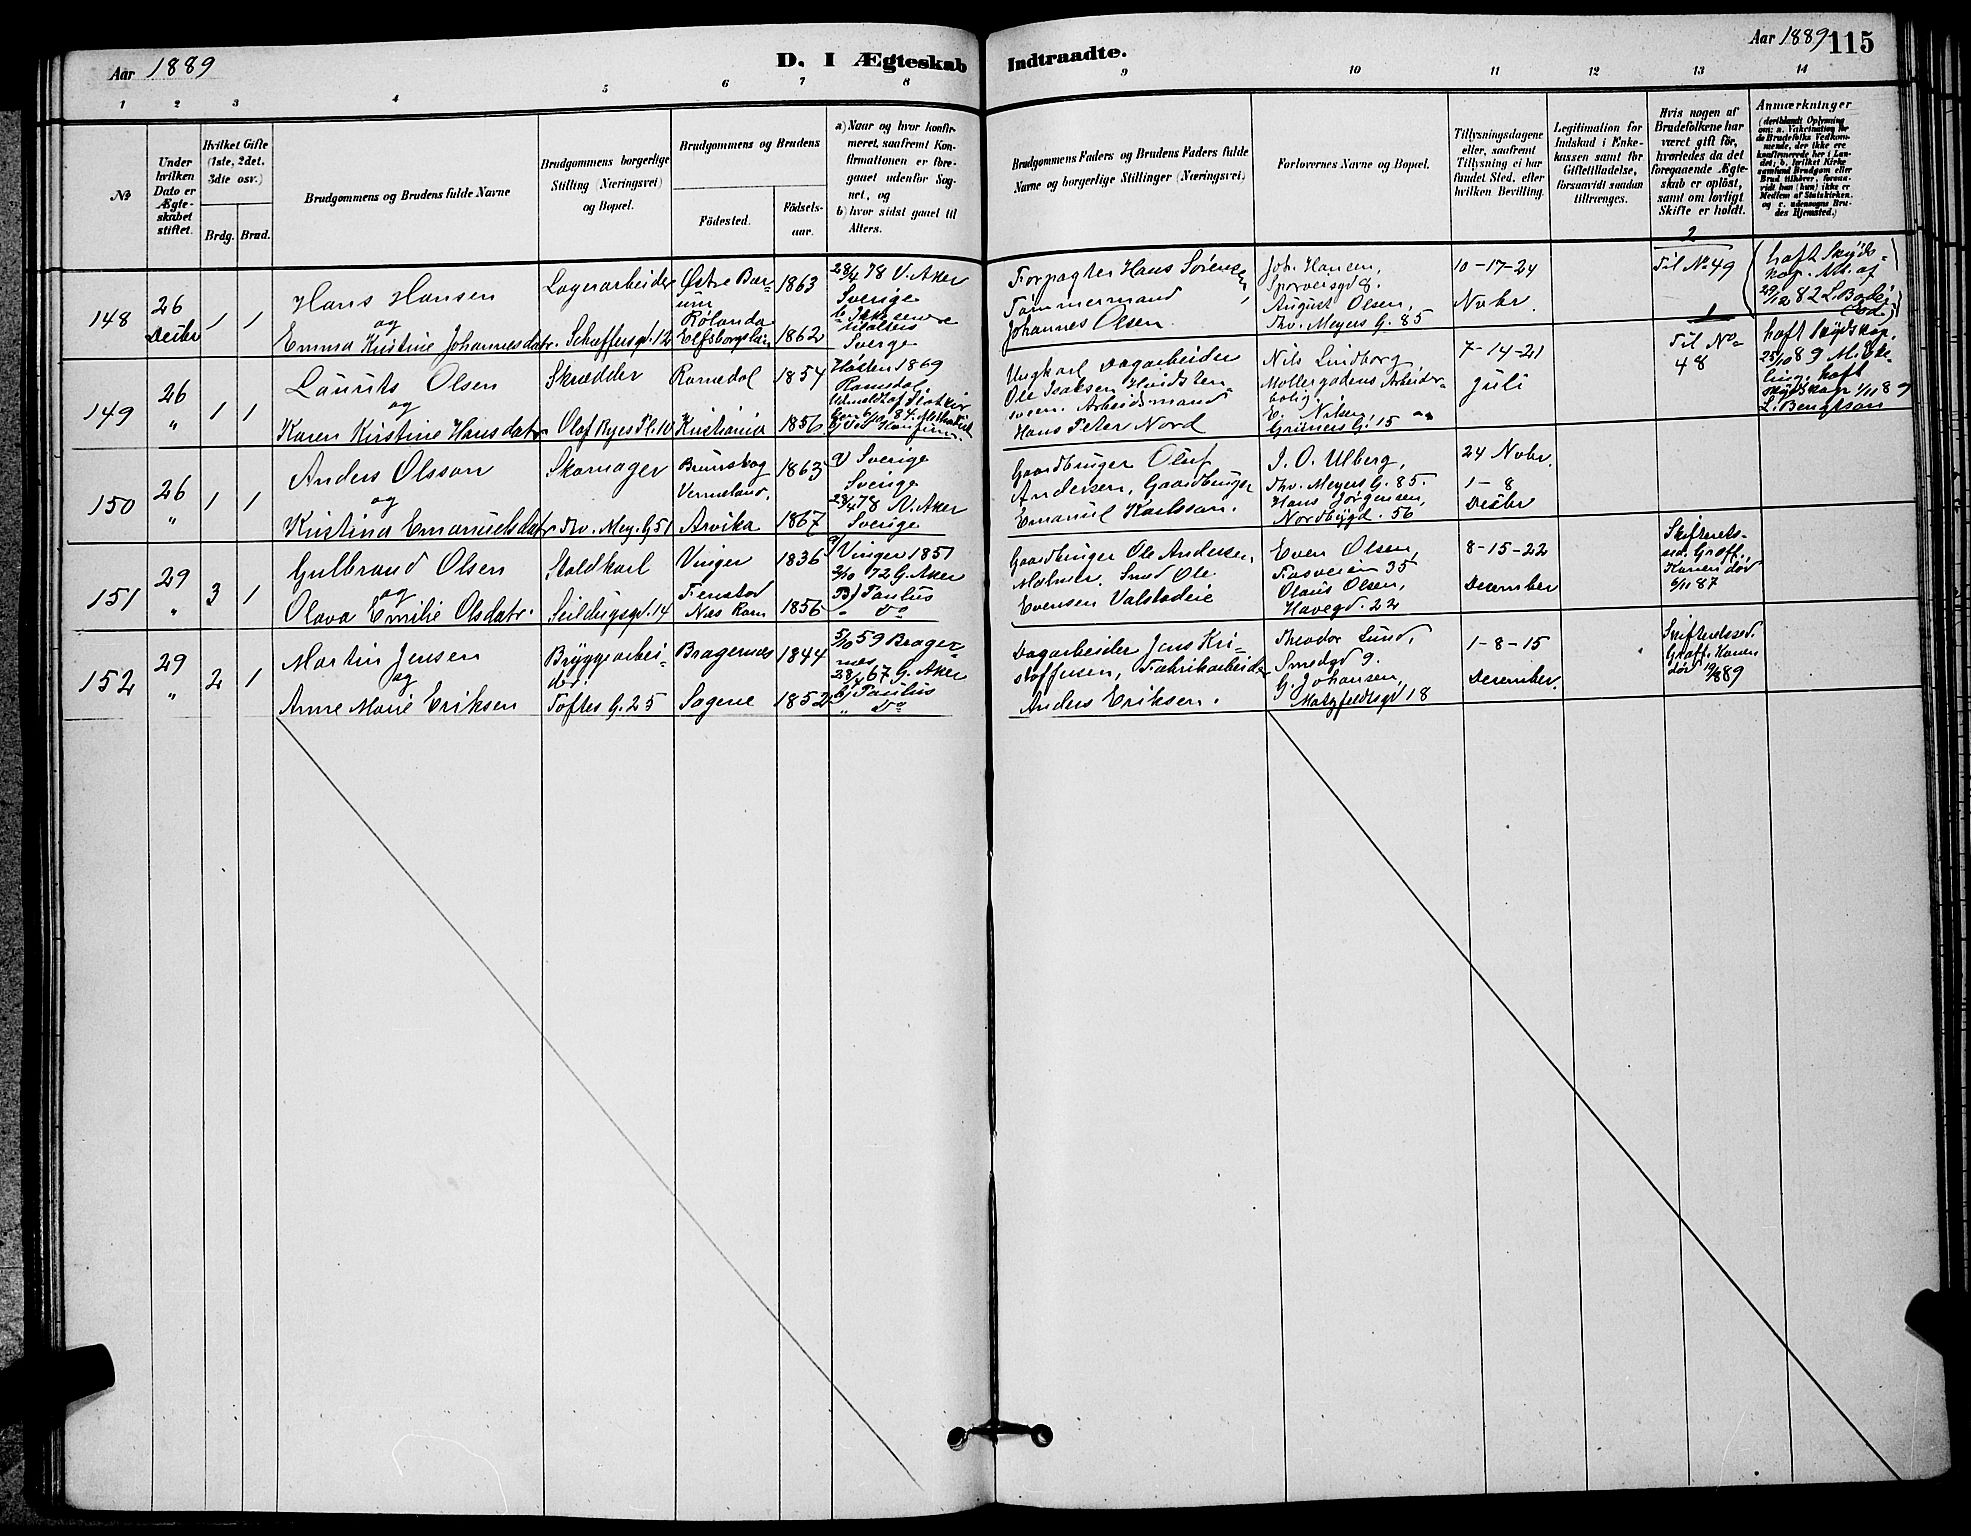 Aar 1889
D. I Ægteskab
Indtraadte.
Aar 1889
115
1 2 3 4 5 6 7 8
9 10 11 12 13 14
No
Under hvilken Dato er Ægteskabet stiftet.
Hvilket Gifte (1ste, 2det, 3die osv.)
Brdg.
Brud.
Brudgommens og Brudens fulde Navne
Brudgommens borgerlige Stilling (Næringsvei) og Bopæl.
Brudgommens og Brudens
Födested.
Födsels-aar.
a) Naar og hvor konfirmeret, saafremt Konfirmationen er foregaaet udenfor Sognet, og
b) hvor sidst gaaet til Alters.
Brudgommens Faders og Brudens Faders fulde Navne og borgerlige Stillinger (Næringsvei)
Forlovernes Navne og Bopæl.
Tillysningsdagene eller, saafremt Tillysning ei har fundet Sted, efter hvilken Bevilling.
Legitimation for Indskud i Enkekassen samt for Giftetilladelse, forsaavidt saadan tiltrænges.
Hvis nogen af Brudefolkene har været gift för, hvorledes da det foregaaende Ægteskab er oplöst, samt om lovligt Skifte er holdt.
Anmærkninger
148
26
Desbr
1
1
Hans Hansen
og
Emma Kristine Johannesdatr.
Lagerarbeider
Schaffersgd. 12
Østre Bærum
Rølanda
Elfsborgslän
1863
1862
28/4 78 V. Aker
Sverige
Sverge
Forpagter Hans Sørensen,
Tømmermand
Johannes Olsen
Joh. Hansen,
August Olsen,
Thv. Meyers G. 85
10-17-24
Novbr.
2
Til No 49
haft Skyds-
29/12 82
149
26
"
1
1
Laurits Olsen
og
Karen Kristine Hansdatr
Skrædder
Olaf Ryes Pl. 10
Romedal
Kristiania
1854
1856
Høsten 1869
Romedal
Ungkarl Dagarbeider
Ole Isaksen
Arbeidsmand
Hans Peter Nord
Nils Lindborg
Møllergadens Arbeider-
bolig
Grüners G. 15
7-14-21
Juli
1
Til No
48
25/10 89
1/11 89
L. Bengtson
150
26
"
1
1
Anders Olsson
og
Kristina Emanuelsdatr
Skomager
Thv. Mey. G. 51
Brunskog
Vermeland,
Arvika
1863
1867
Sverige
Sverige
28/4 78 V. Aker
Sverige
Gaardbruger Oluf
Andersen, Gaardbruger
Emanuel Karlsson.
J. O. Ulberg,
Thv. Meyers G. 85.
Hans Jørgensen,
Nordbygd. 56
24 Novbr.
1-8
Desbr
151
29
"
3
1
Gulbrand Olsen
og
Olava Emilie Olsdatr.
Staldkarl
Seildugsgd. 14
Vinger
Fenstad
Næs Rom
1836
1856
Vinger 1851
72 G. Aker
B) Paulus
" Do
Gaardbruger Ole Andersen,
Smed Ole
Evensen Valstadeie
Even Olsen,
Fosveien 35
Olaus Olsen,
Havegd. 22
8-15-22
December
Skifterets-
sed. Graff.,
Konen død
6/11 87
152
29
"
2
1
Martin Jensen
og
Anne Marie Eriksen
Bryggearbei-
der.
Toftes G. 25
Bragernes
Sagene
1844
1852
5/10 59 Brager-
nes
67 G. Aker
b) Paulus
" Do
Dagarbeider Jens Kri-
stoffersen, Fabrikarbeider
Anders Eriksen.
Theodor Lund,
Smedgd 9.
G. Johansen,
Motzfeldtsgd 18
1-8-15
December.
Skifteretssed.
Graff. Konen
død 19/8 89